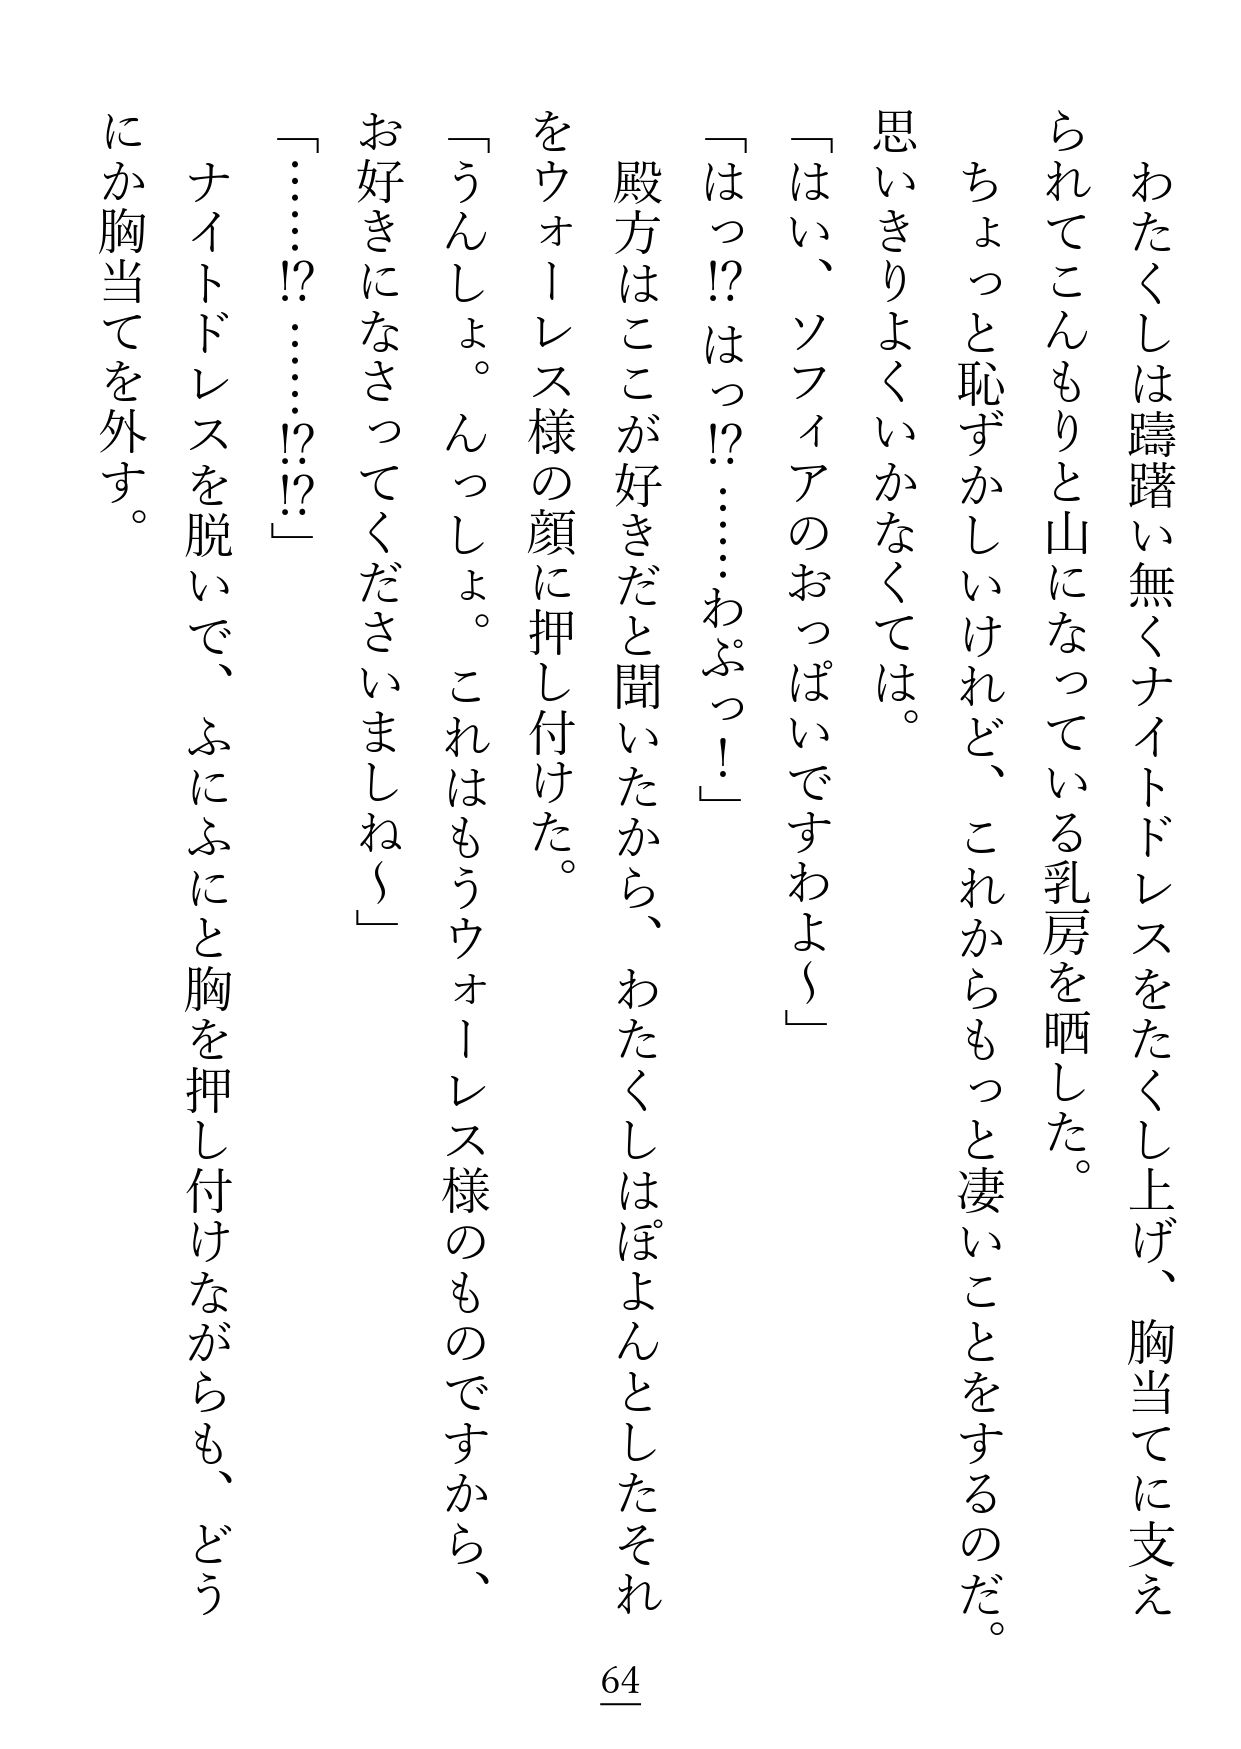 わたくしは躊躇い無くナイトドレスをたくし上げ、胸当てに支え
られてこんもりと山になっている乳房を晒した。
ちょっと恥ずかしいけれど、これからもっと凄いことをするのだ。
思いきりよくいかなくては。
「はい、ソフィアのおっぱいですわよ～」
「はっ!? はっ!? ……わぷっ！」
殿方はここが好きだと聞いたから、わたくしはぽよんとしたそれ
をウォーレス様の顔に押し付けた。
「うんしょ。んっしょ。これはもうウォーレス様のものですから、
お好きになさってくださいましね～」
「……!? ……!? !?」
ナイトドレスを脱いで、ふにふにと胸を押し付けながらも、どう
にか胸当てを外す。
64